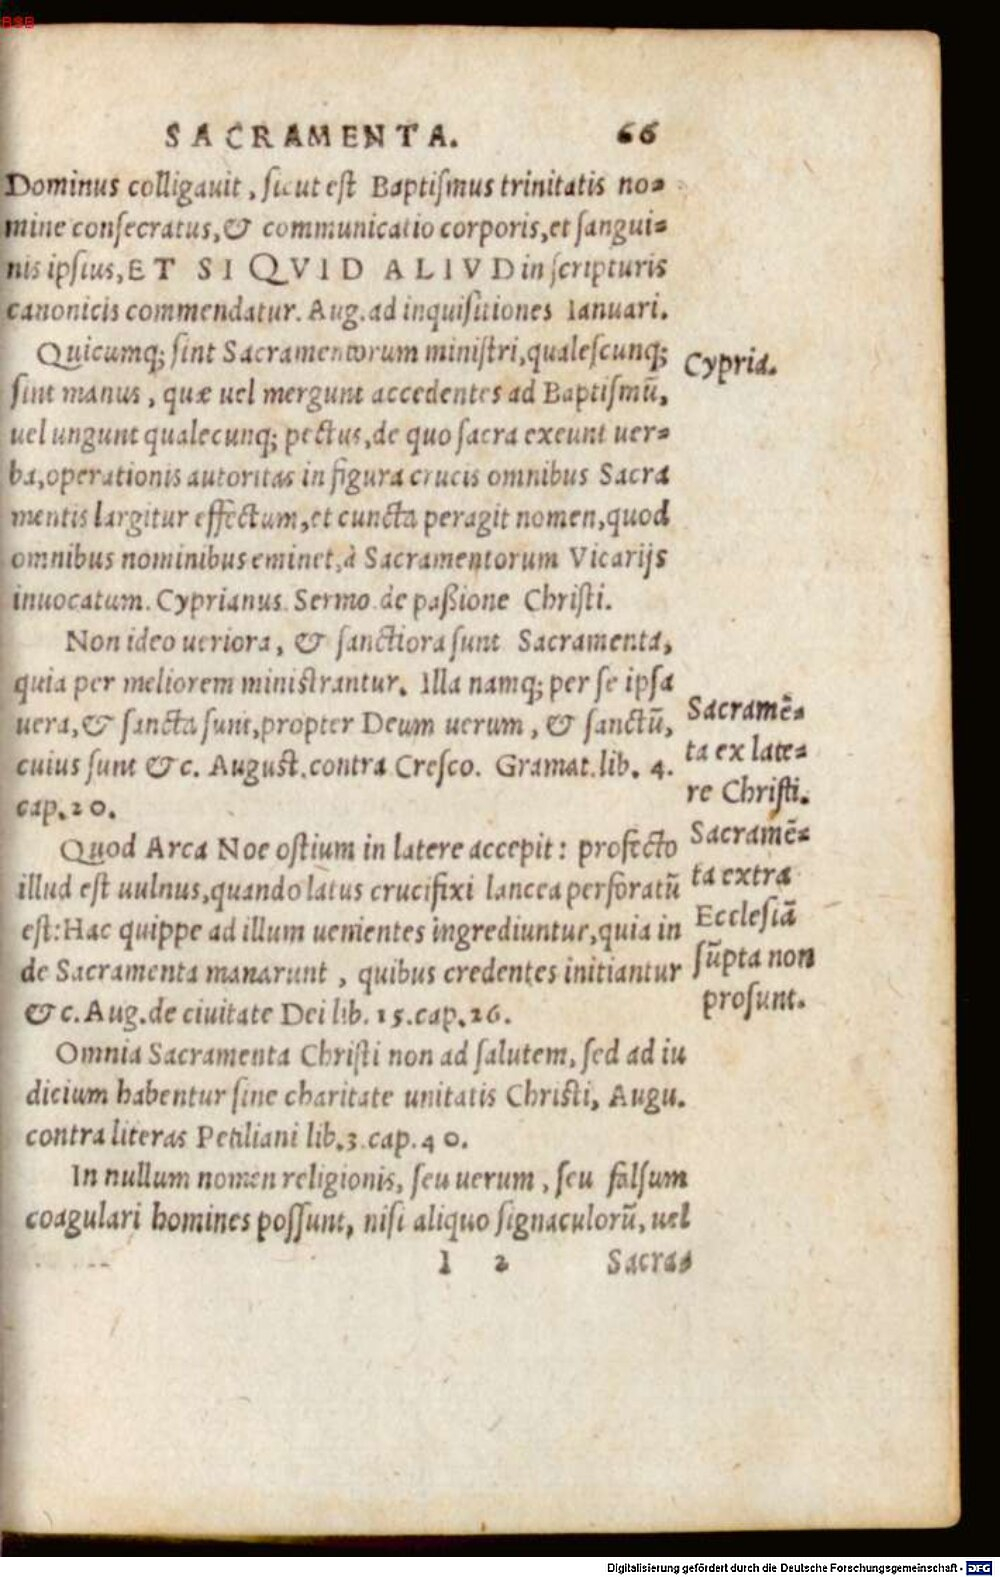 BSB
SACRAMENTA. 66
Dominus colligauit, sicut est Baptismus trinitatis no-
mine consecratus, & communicatio corporis, et sangui-
nis ipsius, ET SI QVID ALIVD in scripturis
canonicis commendatur. Aug. ad inquisitiones Ianuari.
Quicumq; sint Sacramentorum ministri, qualescunq;
sint manus, quæ uel mergunt accedentes ad Baptismū,
uel ungunt qualecunq; pectus, de quo sacra exeunt uer-
ba, operationis autoritas in figura crucis omnibus Sacra
mentis largitur effectum, et cuncta peragit nomen, quod
omnibus nominibus eminet, à Sacramentorum Vicarijs
inuocatum. Cyprianus Sermo de paßione Christi.
Non ideo ueriora, & sanctiora sunt Sacramenta,
quia per meliorem ministrantur. Illa namq; per se ipsa
uera, & sancta sunt, propter Deum uerum, & sanctū,
cuius sunt &c. August. contra Cresco. Gramat. lib. 4.
cap. 20.
Quod Arca Noe ostium in latere accepit: profecto
illud est uulnus, quando latus crucifixi lancea perforatū
est: Hac quippe ad illum uenientes ingrediuntur, quia in
de Sacramenta manarunt, quibus credentes initiantur
&c. Aug. de ciuitate Dei lib. 15. cap. 26.
Omnia Sacramenta Christi non ad salutem, sed ad iu
dicium habentur sine charitate unitatis Christi, Augu.
contra literas Petiliani lib. 3. cap. 40.
In nullum nomen religionis, seu uerum, seu falsum
coagulari homines possunt, nisi aliquo signaculorū, uel
I 2 Sacra-
Cypria.
Sacramē-
ta ex late-
re Christi.
Sacramē-
ta extra
Ecclesiā
sūpta non
prosunt.
Digitalisierung gefördert durch die Deutsche Forschungsgemeinschaft - DFG